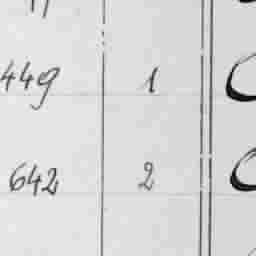 449 1
642 2